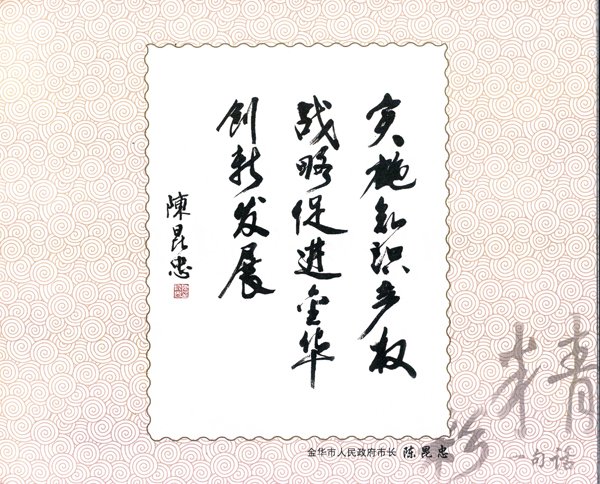 实施知识产权
战略促进金华
创新发展
陳昆忠
金华市人民政府市长 陈昆忠
精彩
一句话